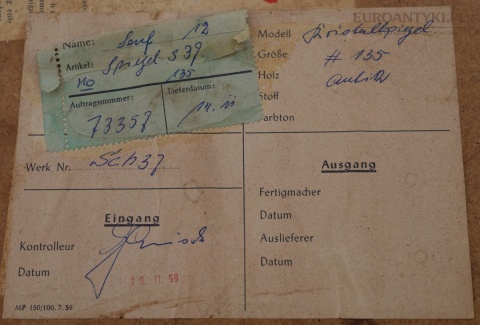 EUROANTYKI
Name: Senf 12
Artikel: Spiegel S 39
No 135
Auftragsnummer: Lieferdatum:
73357 14. 11
Modell Kristallspiegel
Größe # 135
Holz antik
Stoff
Farbton
Werk Nr. Sch 37
Eingang
Kontrolleur
Datum 11 59
MP 150/100. 7. 59
Ausgang
Fertigmacher
Datum
Auslieferer
Datum